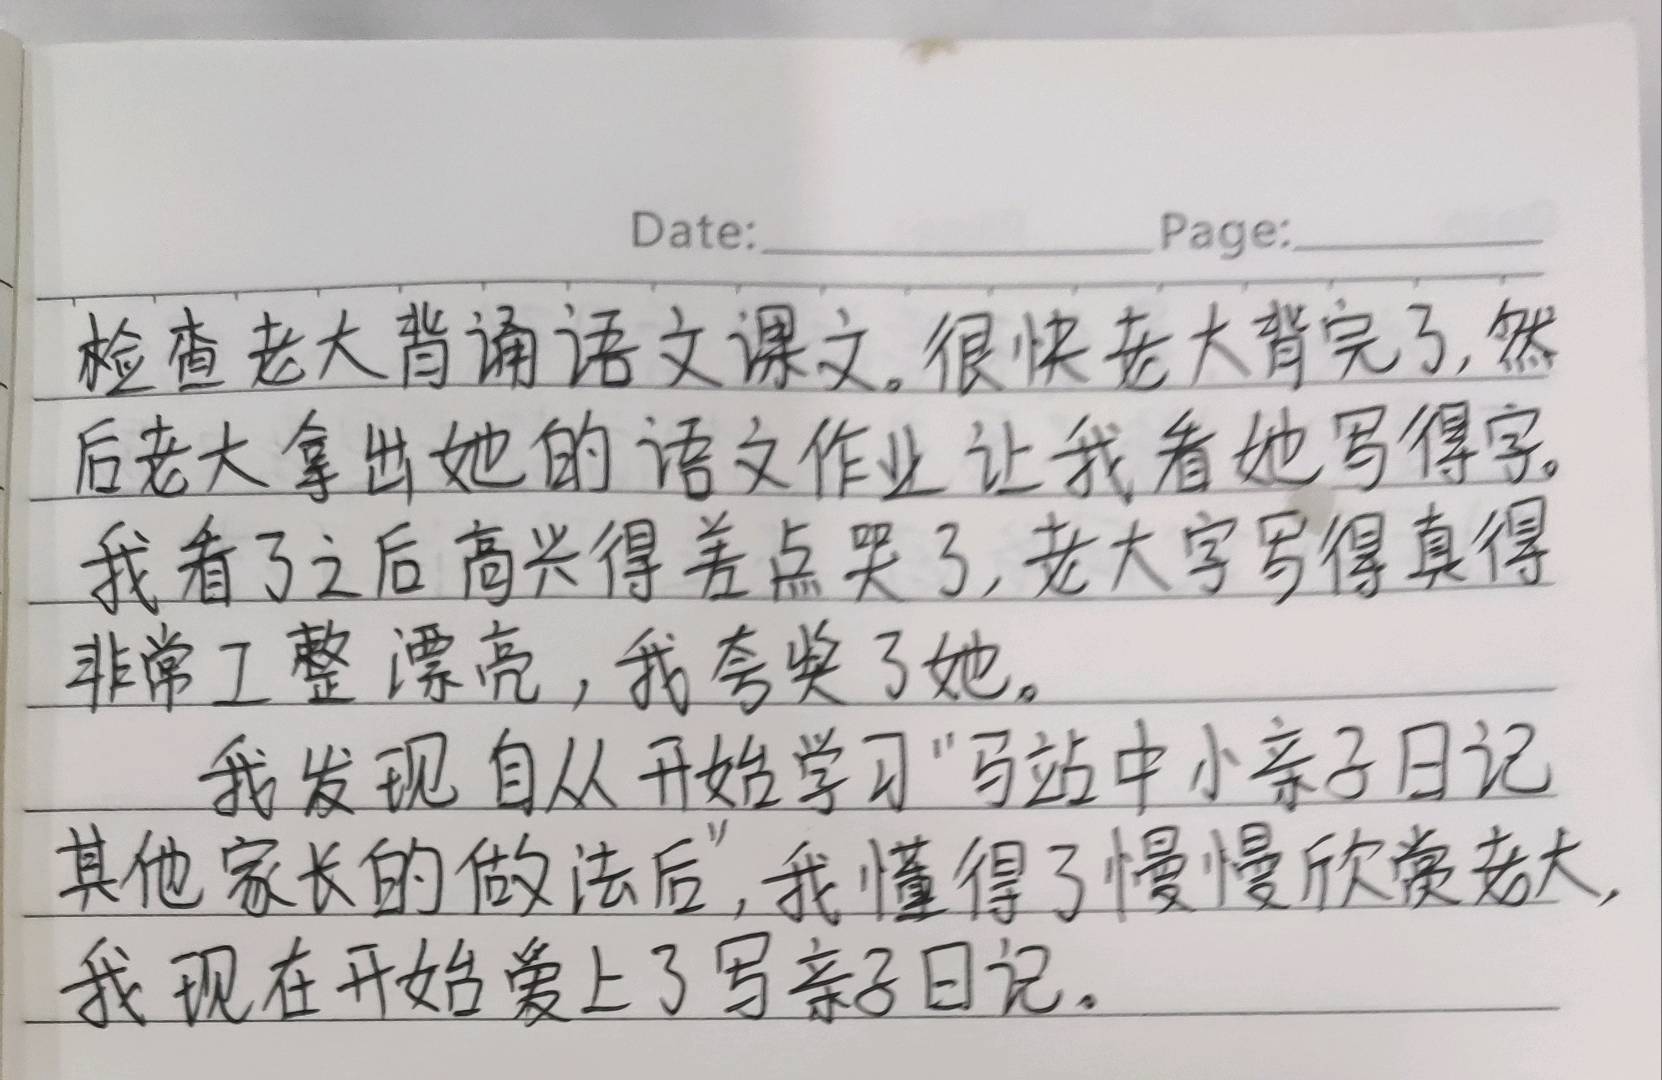 Date: Page:
检查老大背诵语文课文。很快老大背完了,然
后老大拿出她的语文作业让我看她写得字。
我看了之后高兴得差点哭了,老大字写得真得
非常工整漂亮,我夸奖了她。
我发现自从开始学习"马站中小亲子日记
其他家长的做法后",我懂得了慢慢欣赏老大,
我现在开始爱上了写亲子日记。